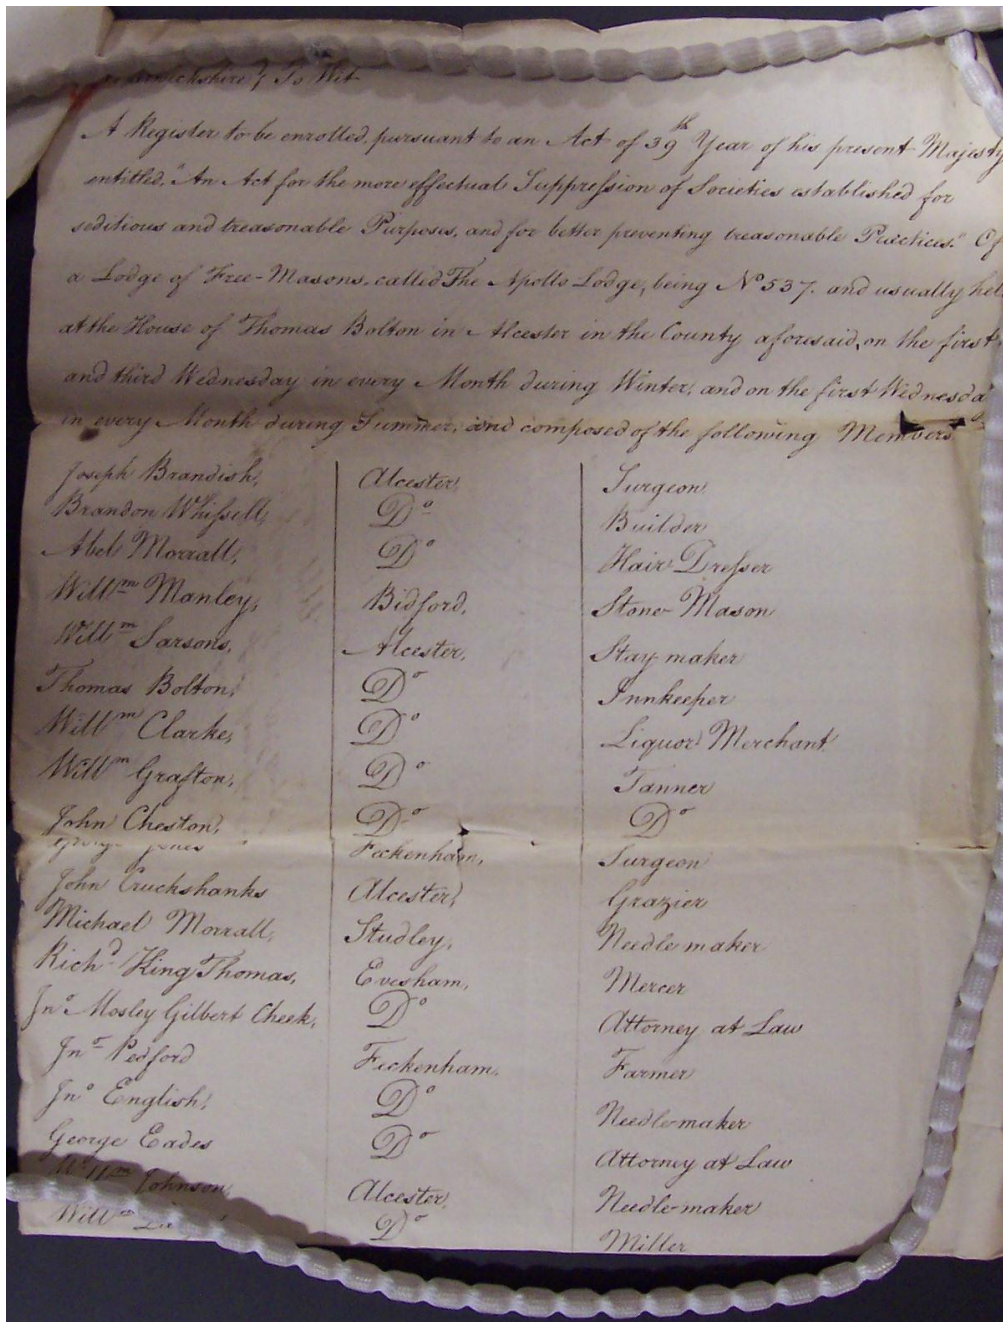 To Wit
A Register to be enrolled, pursuant to an Act of 39th Year of his present Majesty
entitled, "An Act for the more effectual Suppression of Societies established for
seditious and treasonable Purposes, and for better preventing treasonable Practices." Of
a Lodge of Free-Masons, called The Apollo Lodge, being No 537. and usually hel
at the House of Thomas Bolton in Alcester in the County aforesaid, on the first
and third Wednesday in every Month during Winter, and on the first Wednesda
in every Month during Summer, and composed of the following Members
Joseph Brandish, Alcester, Surgeon
Brandon Whissell, Do Builder
Abel Morrall, Do Hair Dresser
Willm Manley, Bidford, Stone Mason
Willm Sarsons, Alcester, Stay maker
Thomas Bolton, Do Innkeeper
Willm Clarke, Do Liquor Merchant
Willm Grafton, Do Tanner
John Cheston, Do Do
George Jones Feckenham, Surgeon
John Cruckshanks Alcester, Grazier
Michael Morrall, Studley, Needle maker
Richd King Thomas, Evesham, Mercer
Jno Mosley Gilbert Cheek, Do Attorney at Law
Jno Pedford Feckenham, Farmer
Jno English, Do Needle-maker
George Eades Do Attorney at Law
Willm Johnson, Alcester, Needle-maker
Willm Do Miller